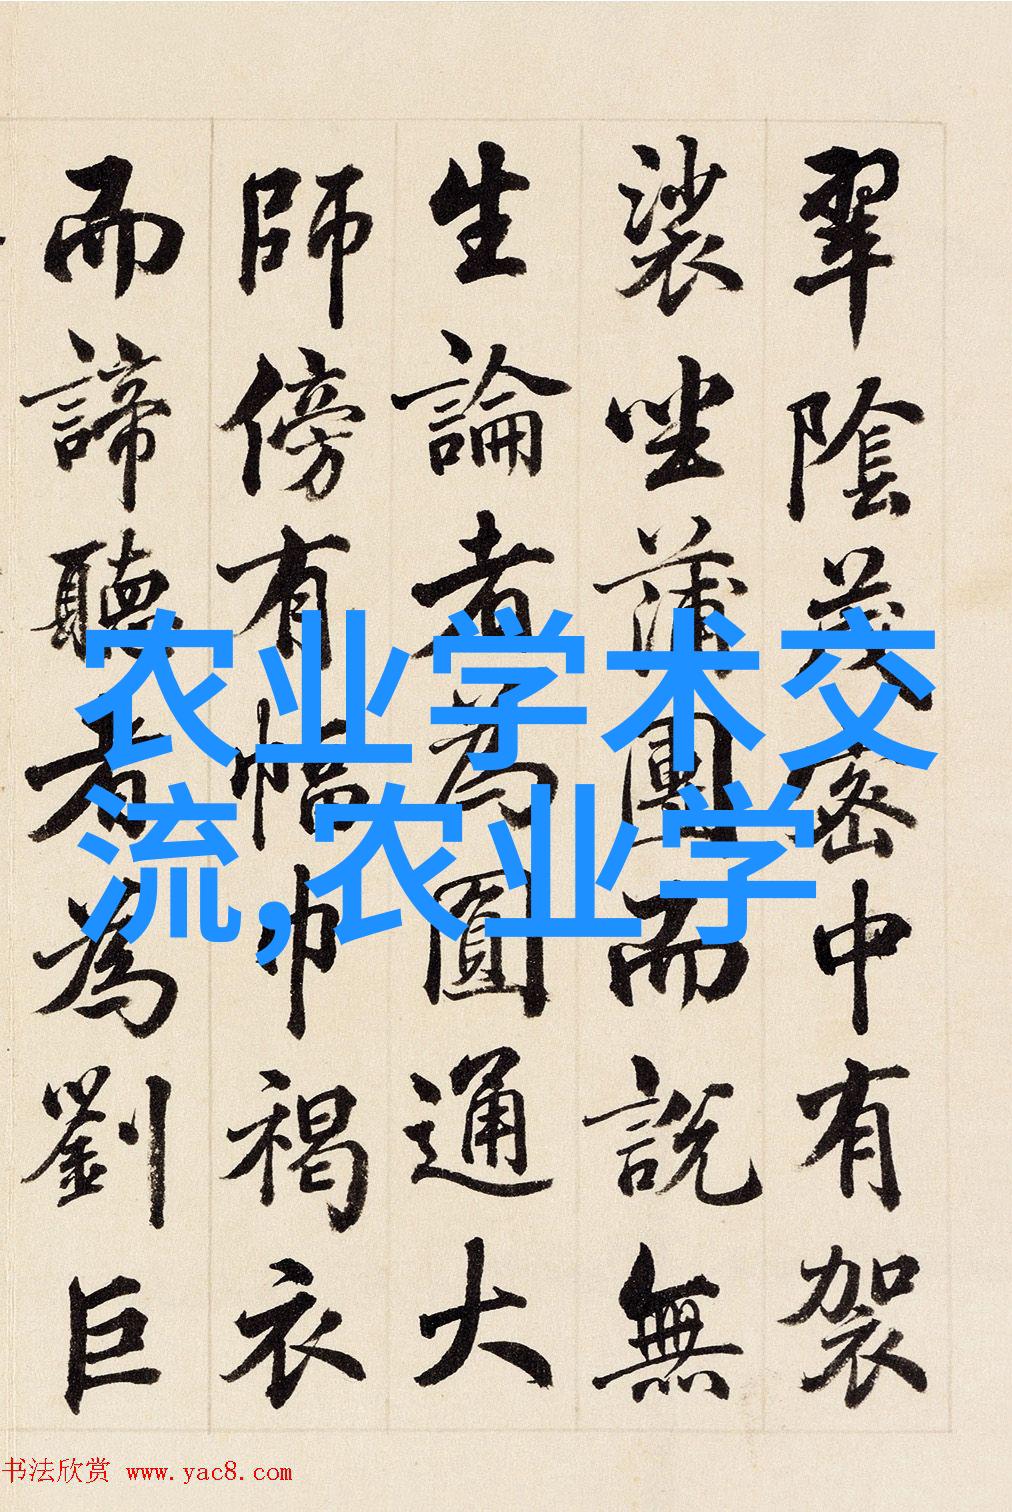 翠陰茂密中有袈
裟坐蒲團而說無
生論者為圓通大
師傍有幅巾褐衣
而諦聽者為劉巨
农业学术交
流,农业学
书法欣赏 www.yac8.com